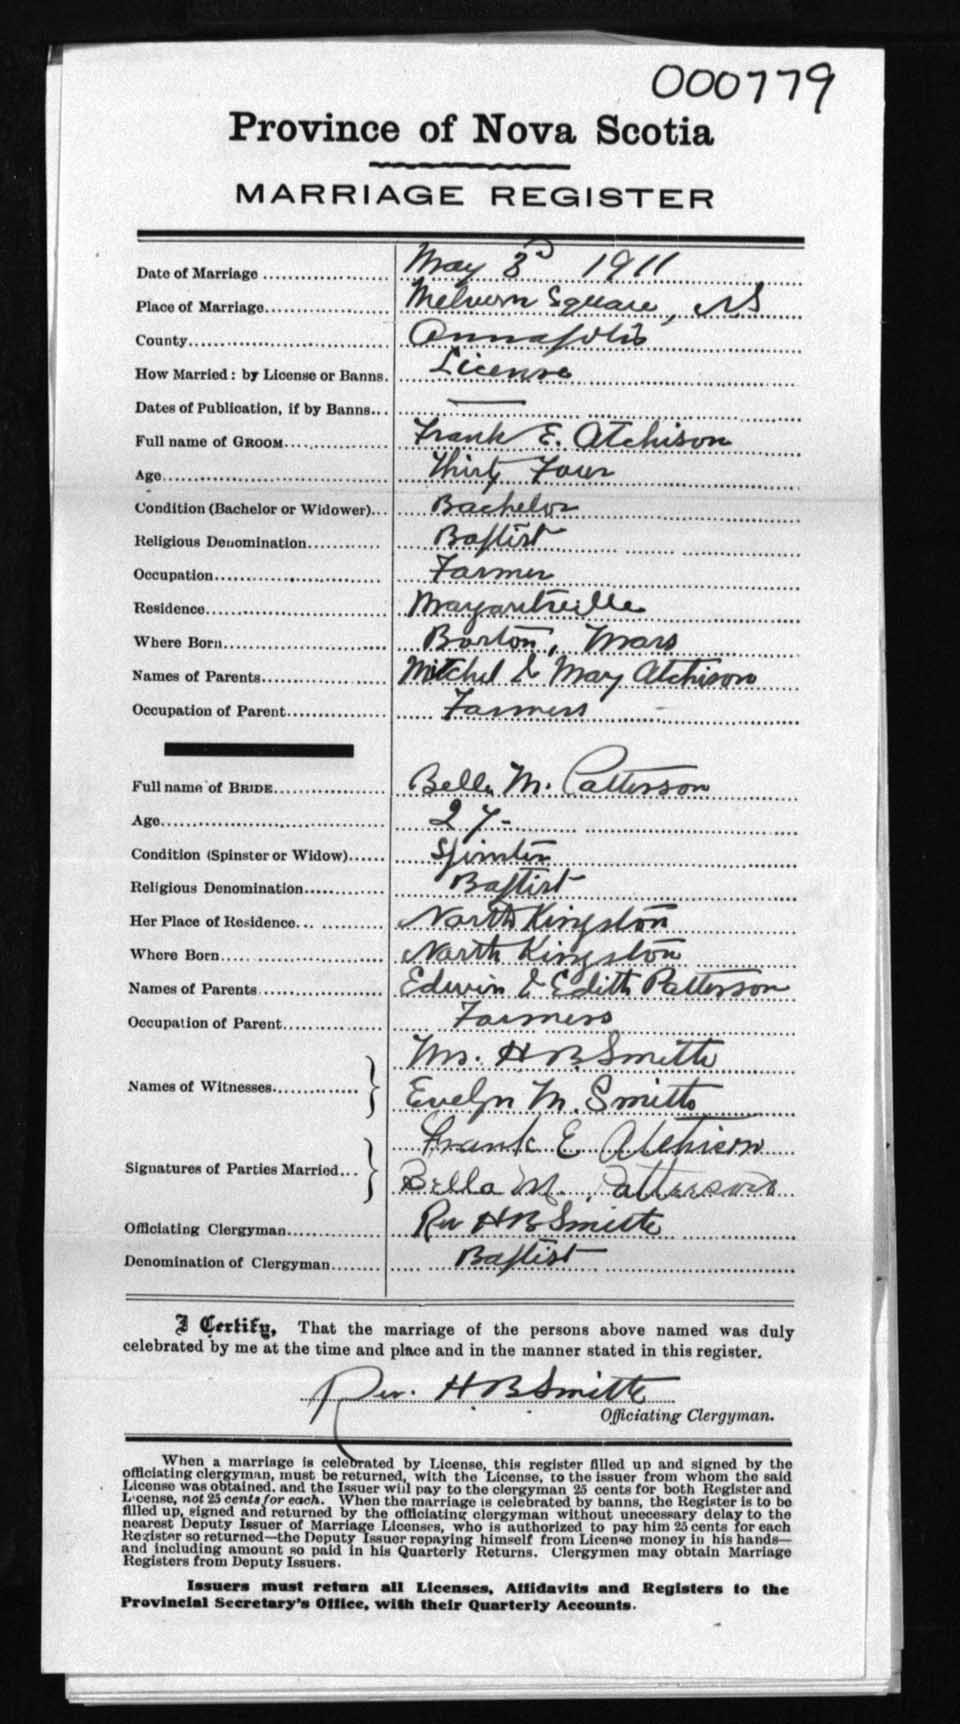 000779
Province of Nova Scotia
MARRIAGE REGISTER
Date of Marriage May 3d 1911
Place of Marriage Melvern Square, NS
County Annapolis
How Married: by License or Banns. License
Dates of Publication, if by Banns... —
Full name of GROOM Frank E. Atchison
Age Thirty Four
Condition (Bachelor or Widower)... Bachelor
Religious Denomination Baptist
Occupation Farmer
Residence Margaretville
Where Born Boston, Mass
Names of Parents Mitchel & Mary Atchison
Occupation of Parent Farmers
Full name of BRIDE Bella M. Patterson
Age 27-
Condition (Spinster or Widow) Spinster
Religious Denomination Baptist
Her Place of Residence North Kingston
Where Born North Kingston
Names of Parents Edwin & Edith Patterson
Occupation of Parent Farmers
Names of Witnesses Mrs. H B Smith
Evelyn M. Smith
Signatures of Parties Married Frank E Atchison
Bella M. Patterson
Officiating Clergyman Rev H B Smith
Denomination of Clergyman Baptist
I Certify, That the marriage of the persons above named was duly
celebrated by me at the time and place and in the manner stated in this register.
Rev. H B Smith
Officiating Clergyman.
When a marriage is celebrated by License, this register filled up and signed by the
officiating clergyman, must be returned, with the License, to the issuer from whom the said
License was obtained, and the Issuer will pay to the clergyman 25 cents for both Register and
License, not 25 cents for each. When the marriage is celebrated by banns, the Register is to be
filled up, signed and returned by the officiating clergyman without unecessary delay to the
nearest Deputy Issuer of Marriage Licenses, who is authorized to pay him 25 cents for each
Register so returned—the Deputy Issuer repaying himself from License money in his hands—
and including amount so paid in his Quarterly Returns. Clergymen may obtain Marriage
Registers from Deputy Issuers.
Issuers must return all Licenses, Affidavits and Registers to the
Provincial Secretary's Office, with their Quarterly Accounts.